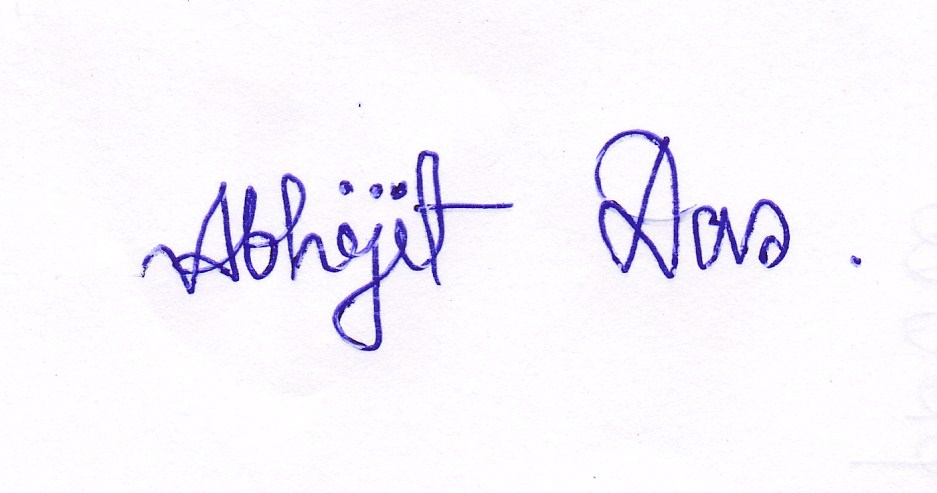 Abhijit Das.